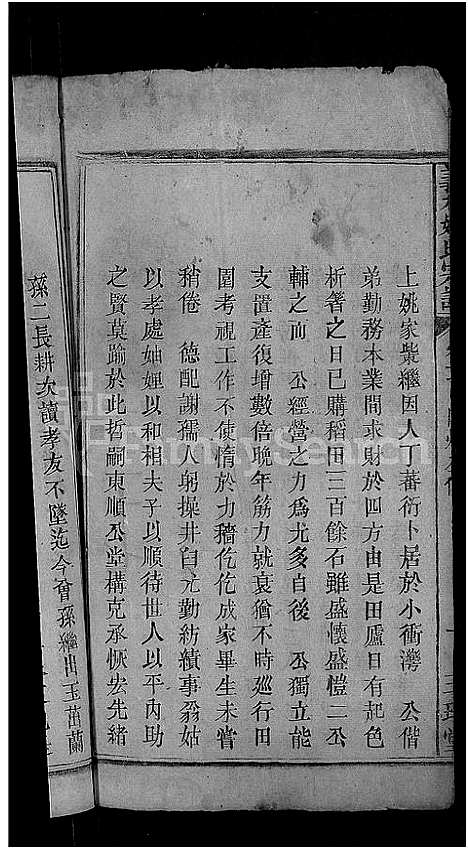 上姚家業繼因人丁蕃衍卜居於小衝灣　公偕
弟勤務本業間求財於四方由是田廬日有起色
析箸之日已購稻田三百餘石雖盛懷盛愷二公
輔之而　公經營之力爲尤多自後　公獨立能
支置產復增數倍晚年筋力就衰猶不時巡行田
園考視工作不使惰於力穡仡仡成家畢生未嘗
稍倦　德配謝孺人躬操井臼尤勤紡績事翁姑
以孝處妯娌以和相夫子以順待世人以平內助
之賢莫踰於此哲嗣東順公堂構克承恢宏先緒
孫二長耕次讀孝友不墜迄今曾孫繼出玉茁蘭
FamilySearch